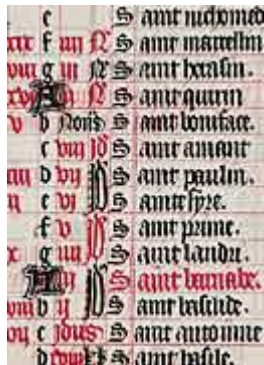 e S aint nichomed
xix f iiij N S aint marcellin
viij g iij N S aint herasin.
xvj A ij N S aint quirin
v b Nons S aint boniface.
c viij id S aint amant
d vij id S aint paulin.
ij e vj S ainte fyre.
f v S aint prime.
x g iiij S aint landri.
A iij S aint barnabe.
b ij id S aint basilide.
c idus S aint antoinne
d S aint basile.